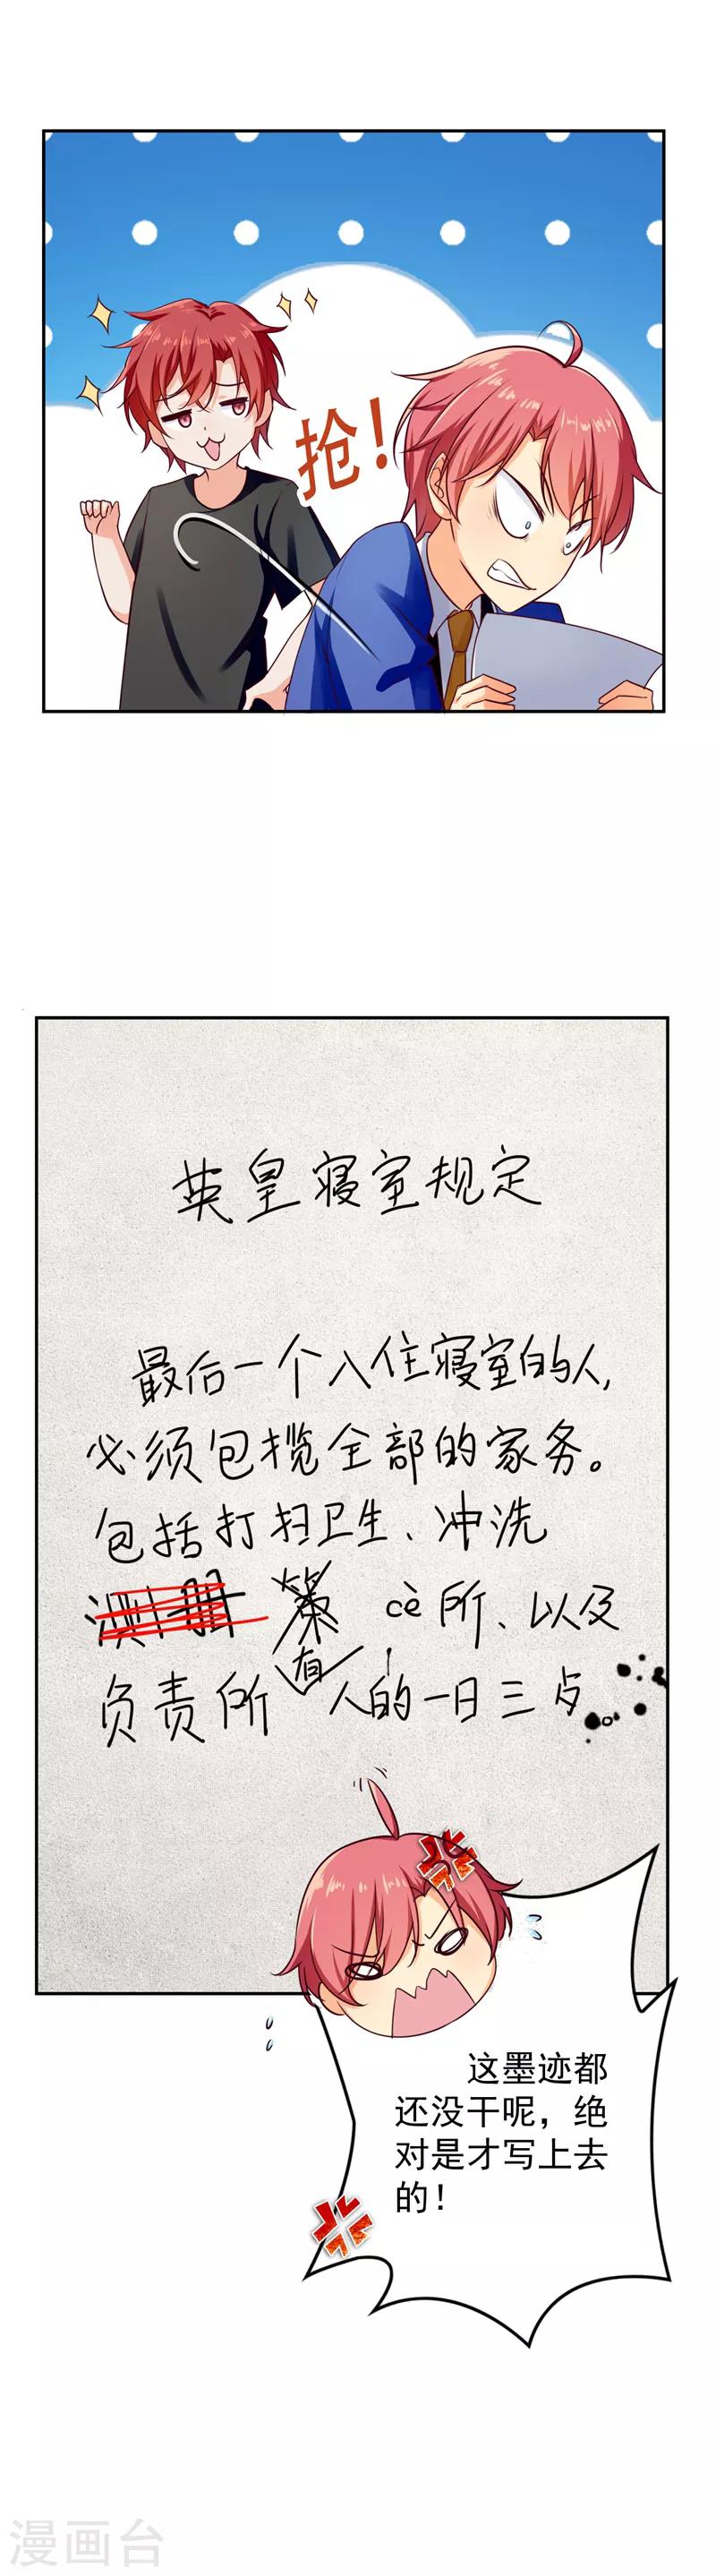 抢！
英皇寝室规定
最后一个入住寝室的人，
必须包揽全部的家务。
包括打扫卫生、冲洗
cè所、以及
负责所有人的一日三歺。
这墨迹都
还没干呢，绝
对是才写上去
的！
漫画台